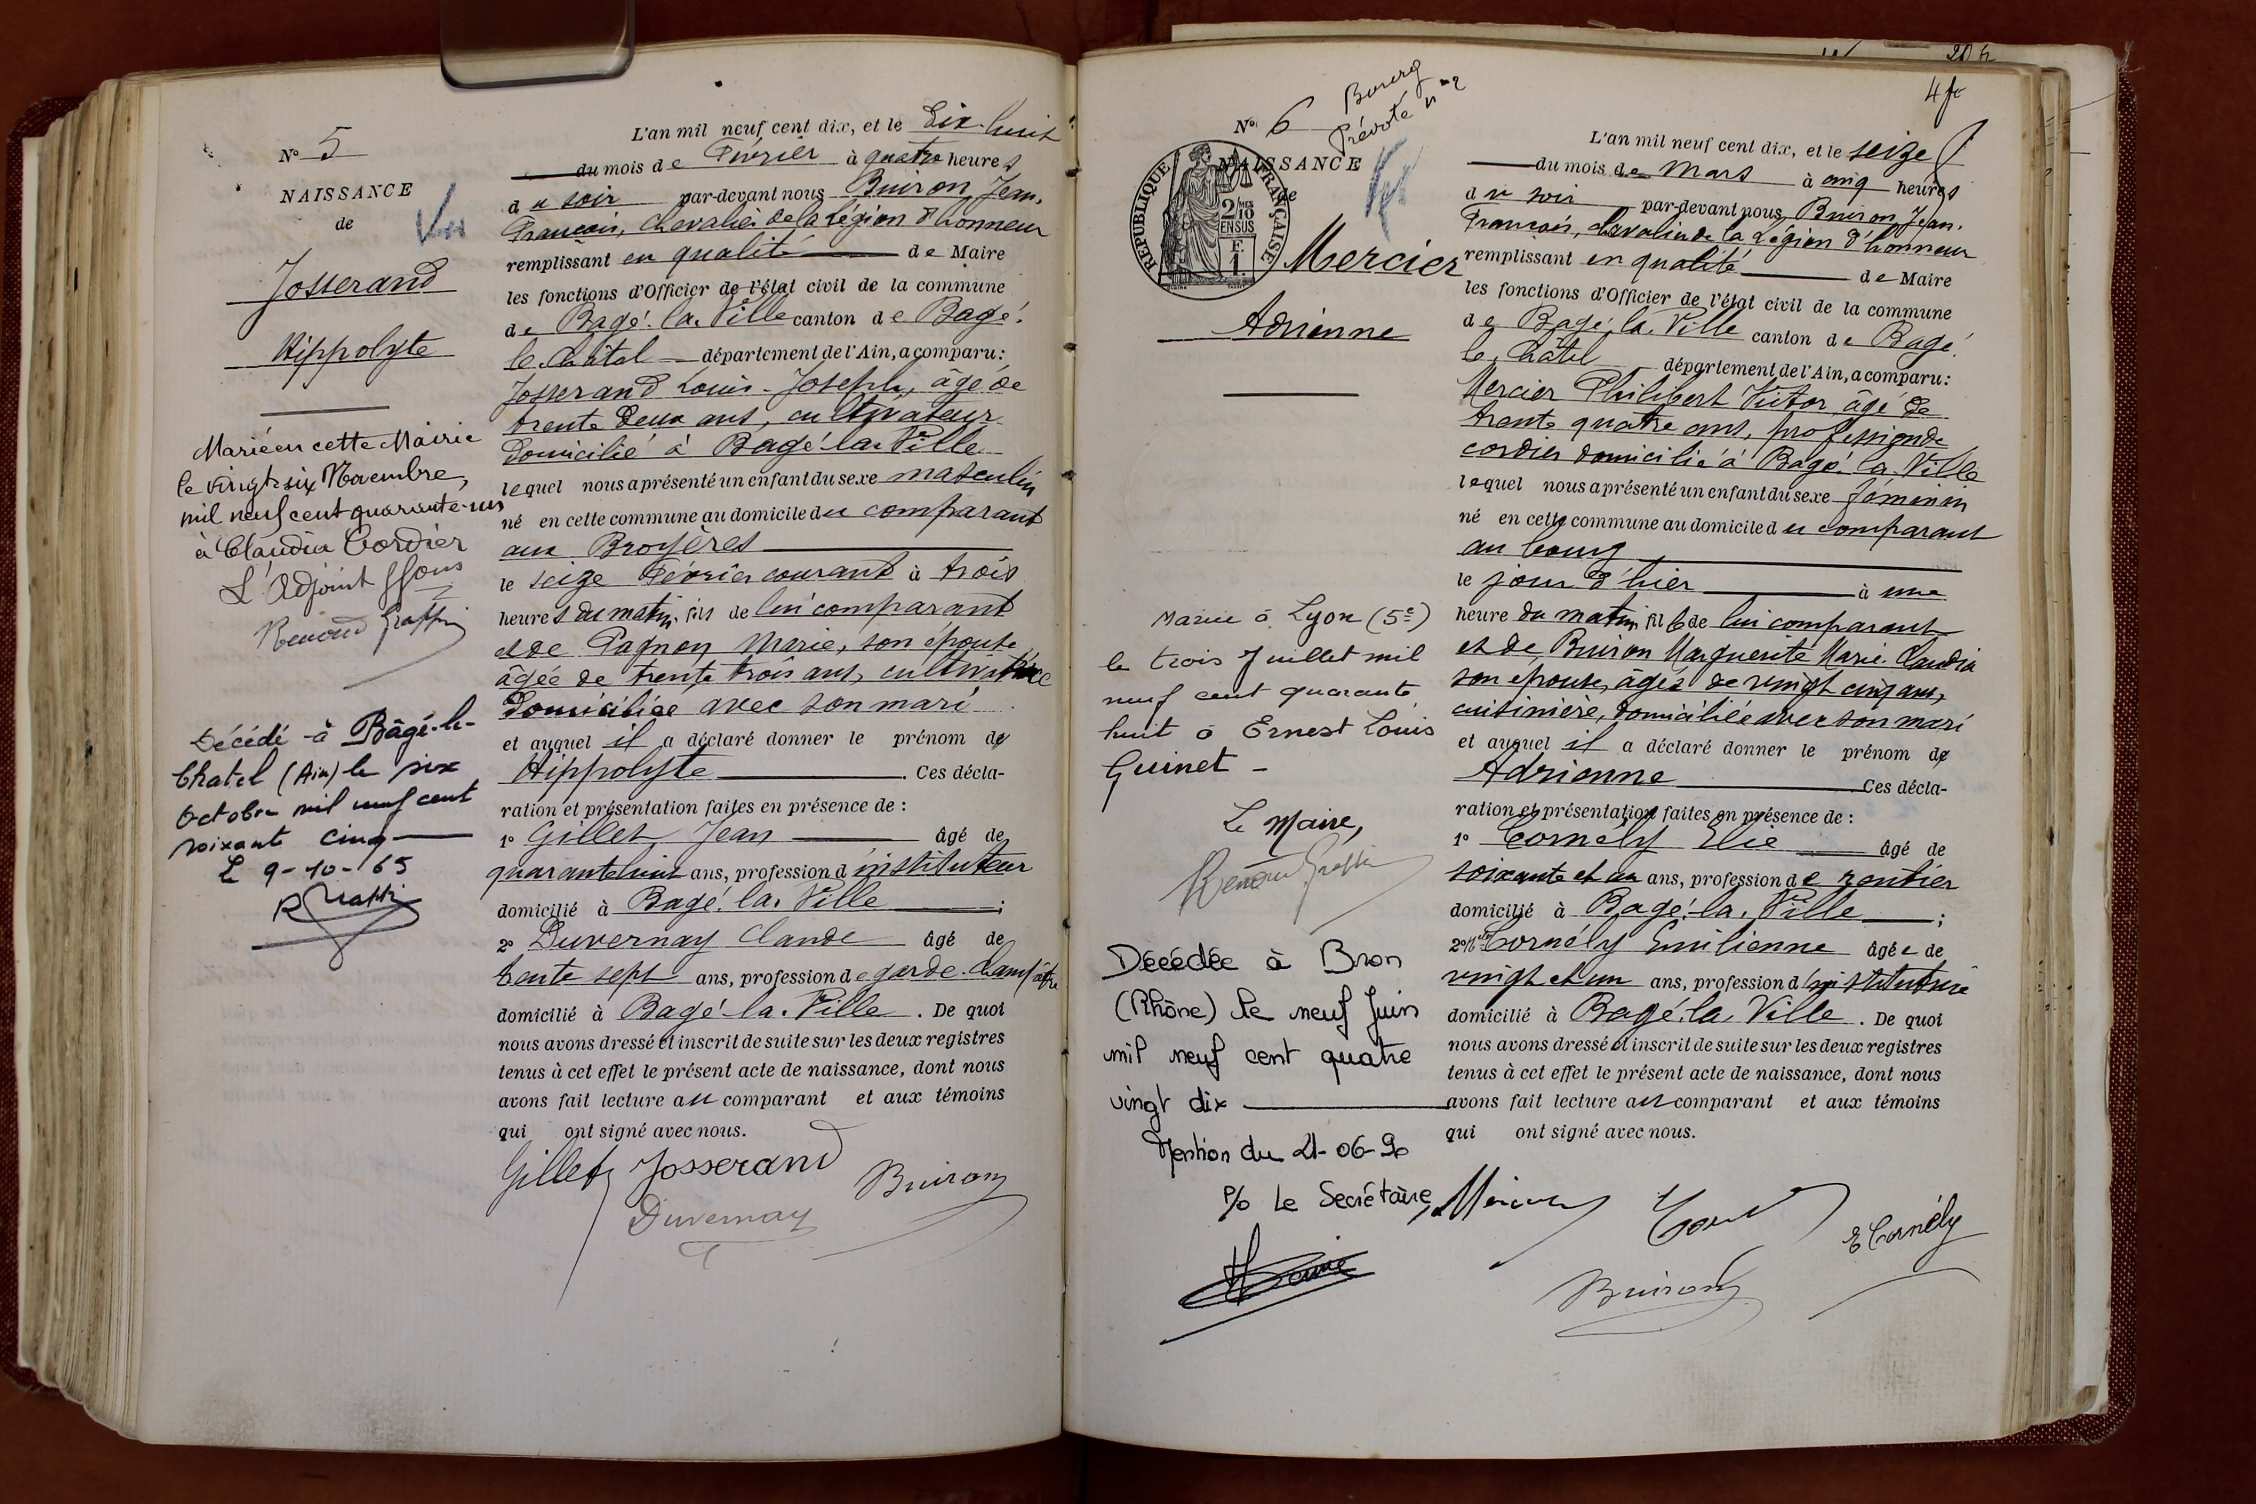 N° 5
NAISSANCE
de
Josserand
Hippolyte
Marié en cette Mairie
le vingt-six Novembre,
mil neuf cent quarante-un
à Claudia Cordier
L'Adjoint
Décédé à Bâgé-le-
Chatel (Ain) le six
Octobre mil neuf cent
soixante cinq
L 9-10-65
L'an mil neuf cent dix, et le Dix-huit
du mois de Février à quatre heures
du soir par-devant nous Buiron Jean,
François, Chevalier de la Légion d'honneur
remplissant en qualité de Maire
les fonctions d'Officier de l'état civil de la commune
de Bagé-la-Ville canton de Bagé-
le-Châtel département de l'Ain, a comparu:
Josserand Louis-Joseph, âgé de
trente deux ans, cultivateur
domicilié à Bagé-la-Ville
lequel nous a présenté un enfant du sexe masculin
né en cette commune au domicile du comparant
aux Broyères
le seize Février courant à trois
heures du matin, fils de lui comparant
et de Pagnon Marie, son épouse,
âgée de trente trois ans, cultivatrice
domiciliée avec son mari
et auquel il a déclaré donner le prénom de
Hippolyte . Ces décla-
ration et présentation faites en présence de :
1° Gillet Jean âgé de
quarante huit ans, profession d'instituteur
domicilié à Bagé-la-Ville ;
2° Duvernay Claude âgé de
trente sept ans, profession de garde-champêtre
domicilié à Bagé-la-Ville . De quoi
nous avons dressé et inscrit de suite sur les deux registres
tenus à cet effet le présent acte de naissance, dont nous
avons fait lecture au comparant et aux témoins
qui ont signé avec nous.
Gillet Josserand Buiron
Duvernay
4
N° 6 Bourg
Prévoté n° 2
NAISSANCE
de
RÉPUBLIQUE FRANÇAISE
2/10 MES
EN SUS
F.
1.
Mercier
Adrienne
Mariée à Lyon (5e)
le trois Juillet mil
neuf cent quarante
huit à Ernest Louis
Guinet -
Le Maire,
Décédée à Bron
(Rhône) le neuf Juin
mil neuf cent quatre
vingt dix
Mention du 21-06-90
P/o Le Secrétaire,
L'an mil neuf cent dix, et le seize
du mois de Mars à cinq heures
du soir par-devant nous Buiron Jean,
François, chevalier de la Légion d'honneur
remplissant en qualité de Maire
les fonctions d'Officier de l'état civil de la commune
de Bagé-la-Ville canton de Bagé-
le-Châtel département de l'Ain, a comparu:
Mercier Philibert Victor âgé de
trente quatre ans, profession de
cordier domicilié à Bagé-la-Ville
lequel nous a présenté un enfant du sexe féminin
né en cette commune au domicile du comparant
au bourg
le jour d'hier à une
heure du matin, fille de lui comparant
et de Buiron Marguerite Marie-Claudia
son épouse, âgée de vingt cinq ans,
cuisinière, domiciliée avec son mari
et auquel il a déclaré donner le prénom de
Adrienne Ces décla-
ration et présentation faites en présence de :
1° Cornély Elie âgé de
soixante et un ans, profession de rentier
domicilié à Bagé-la-Ville ;
2° Cornély Emilienne âgée de
vingt et un ans, profession d'institutrice
domicilié à Bagé-la-Ville . De quoi
nous avons dressé et inscrit de suite sur les deux registres
tenus à cet effet le présent acte de naissance, dont nous
avons fait lecture au comparant et aux témoins
qui ont signé avec nous.
Mercier E Cornély
Buiron